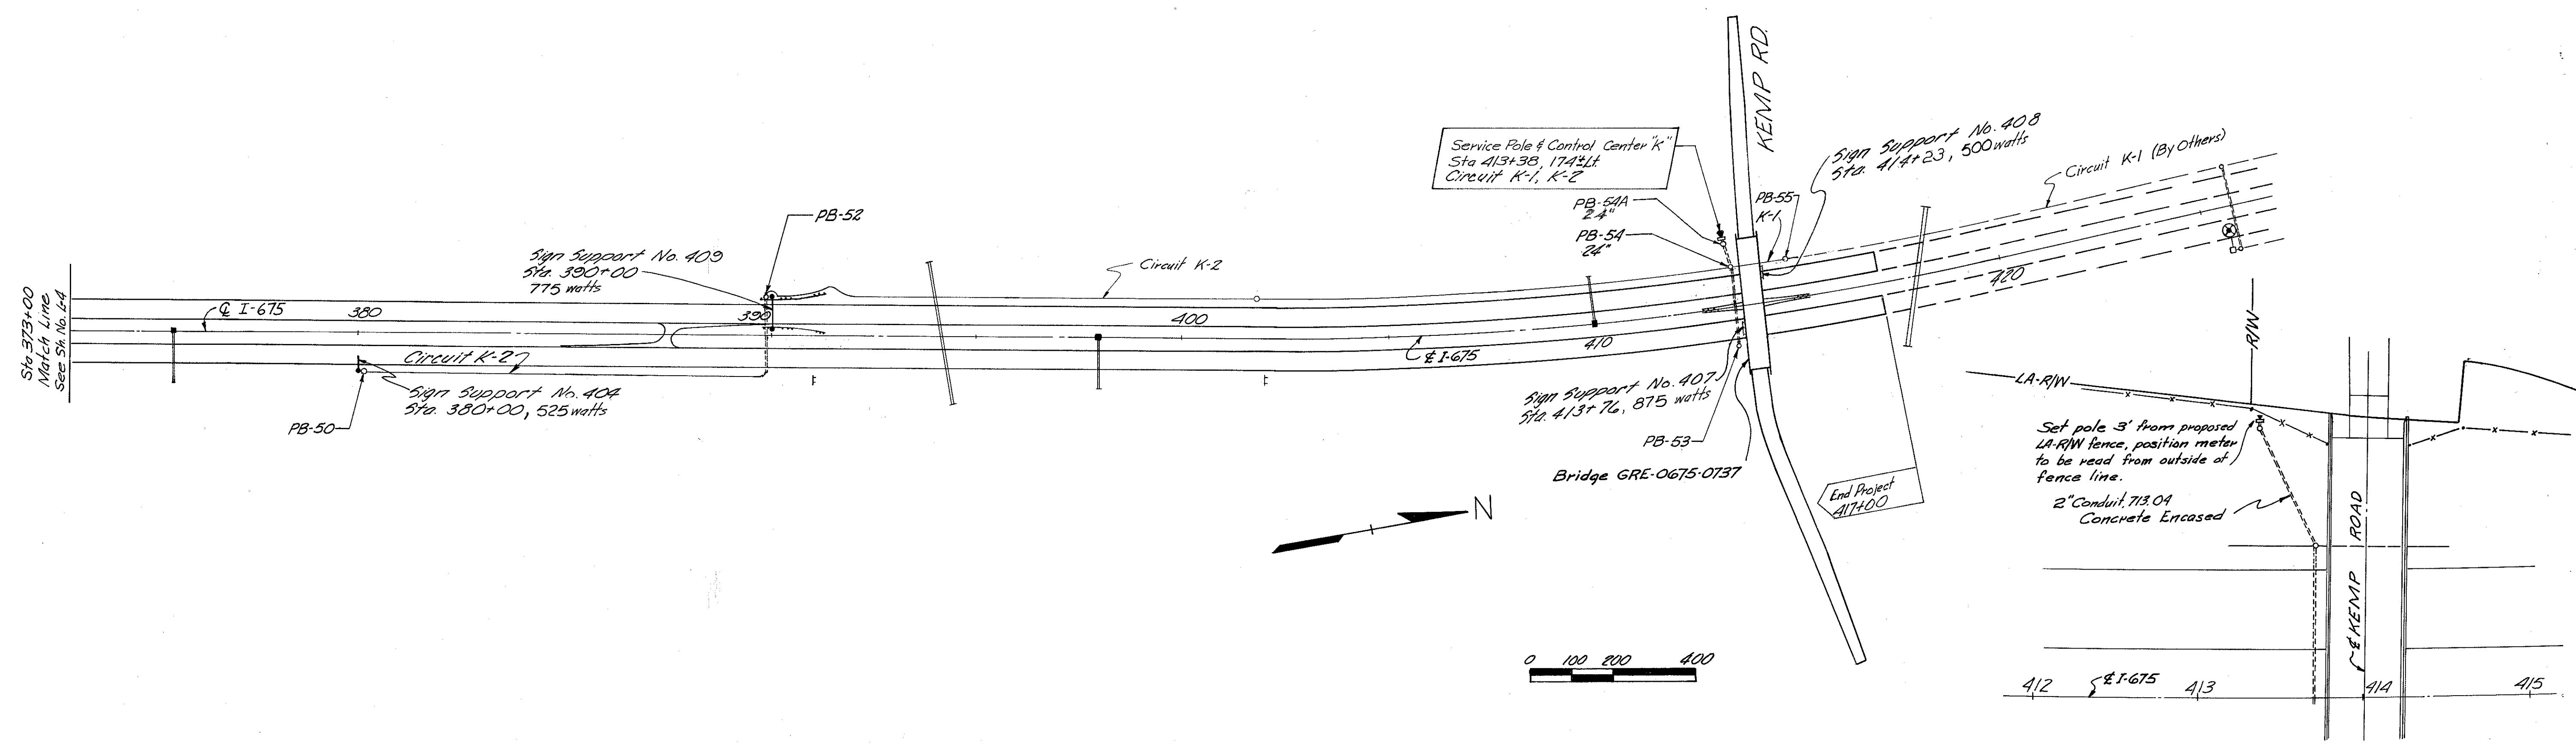 Sta 373+00
Match Line
See Sh. No. L-4
℄ I-675
380
Circuit K-2
Sign Support No. 404
Sta. 380+00, 525 watts
PB-50
Sign Support No. 409
Sta. 390+00
775 watts
PB-52
390
Circuit K-2
400
℄ I-675
410
Service Pole & Control Center "K"
Sta 413+38, 174'±Lt.
Circuit K-1, K-2
PB-54A
24"
PB-54
24"
KEMP RD.
PB-55
K-1
Sign Support No. 408
Sta. 414+23, 500 watts
Circuit K-1 (By Others)
420
Sign Support No. 407
Sta. 413+76, 875 watts
PB-53
Bridge GRE-0675-0737
End Project
417+00
N
0 100 200 400
R/W
LA-R/W
Set pole 3' from proposed
LA-R/W fence, position meter
to be read from outside of
fence line.
2" Conduit, 713.04
Concrete Encased
℄ KEMP ROAD
412
℄ I-675
413
414
415